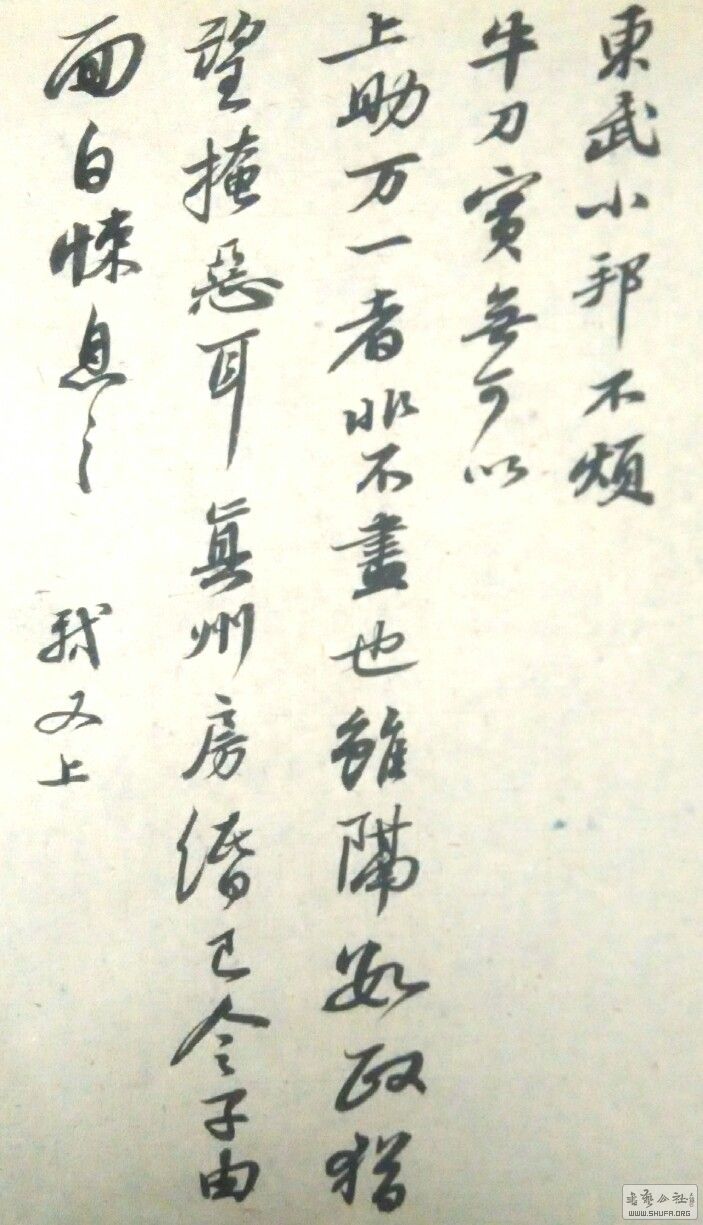 東武小邦不煩
牛刀實無可以
上助万一者非不盡也雖隔數政猶
望掩惡耳真州房緡已令子由
面白悚息〻 軾又上
書藝公社
WWW.SHUFA.ORG